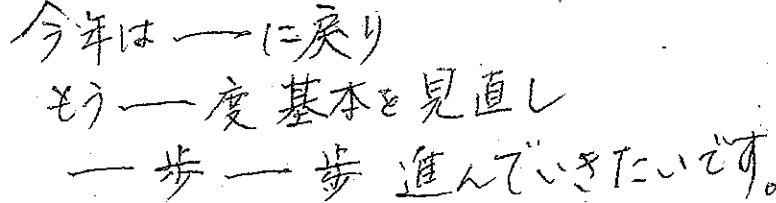 今年は一に戻り
もう一度基本を見直し
一歩一歩進んでいきたいです。